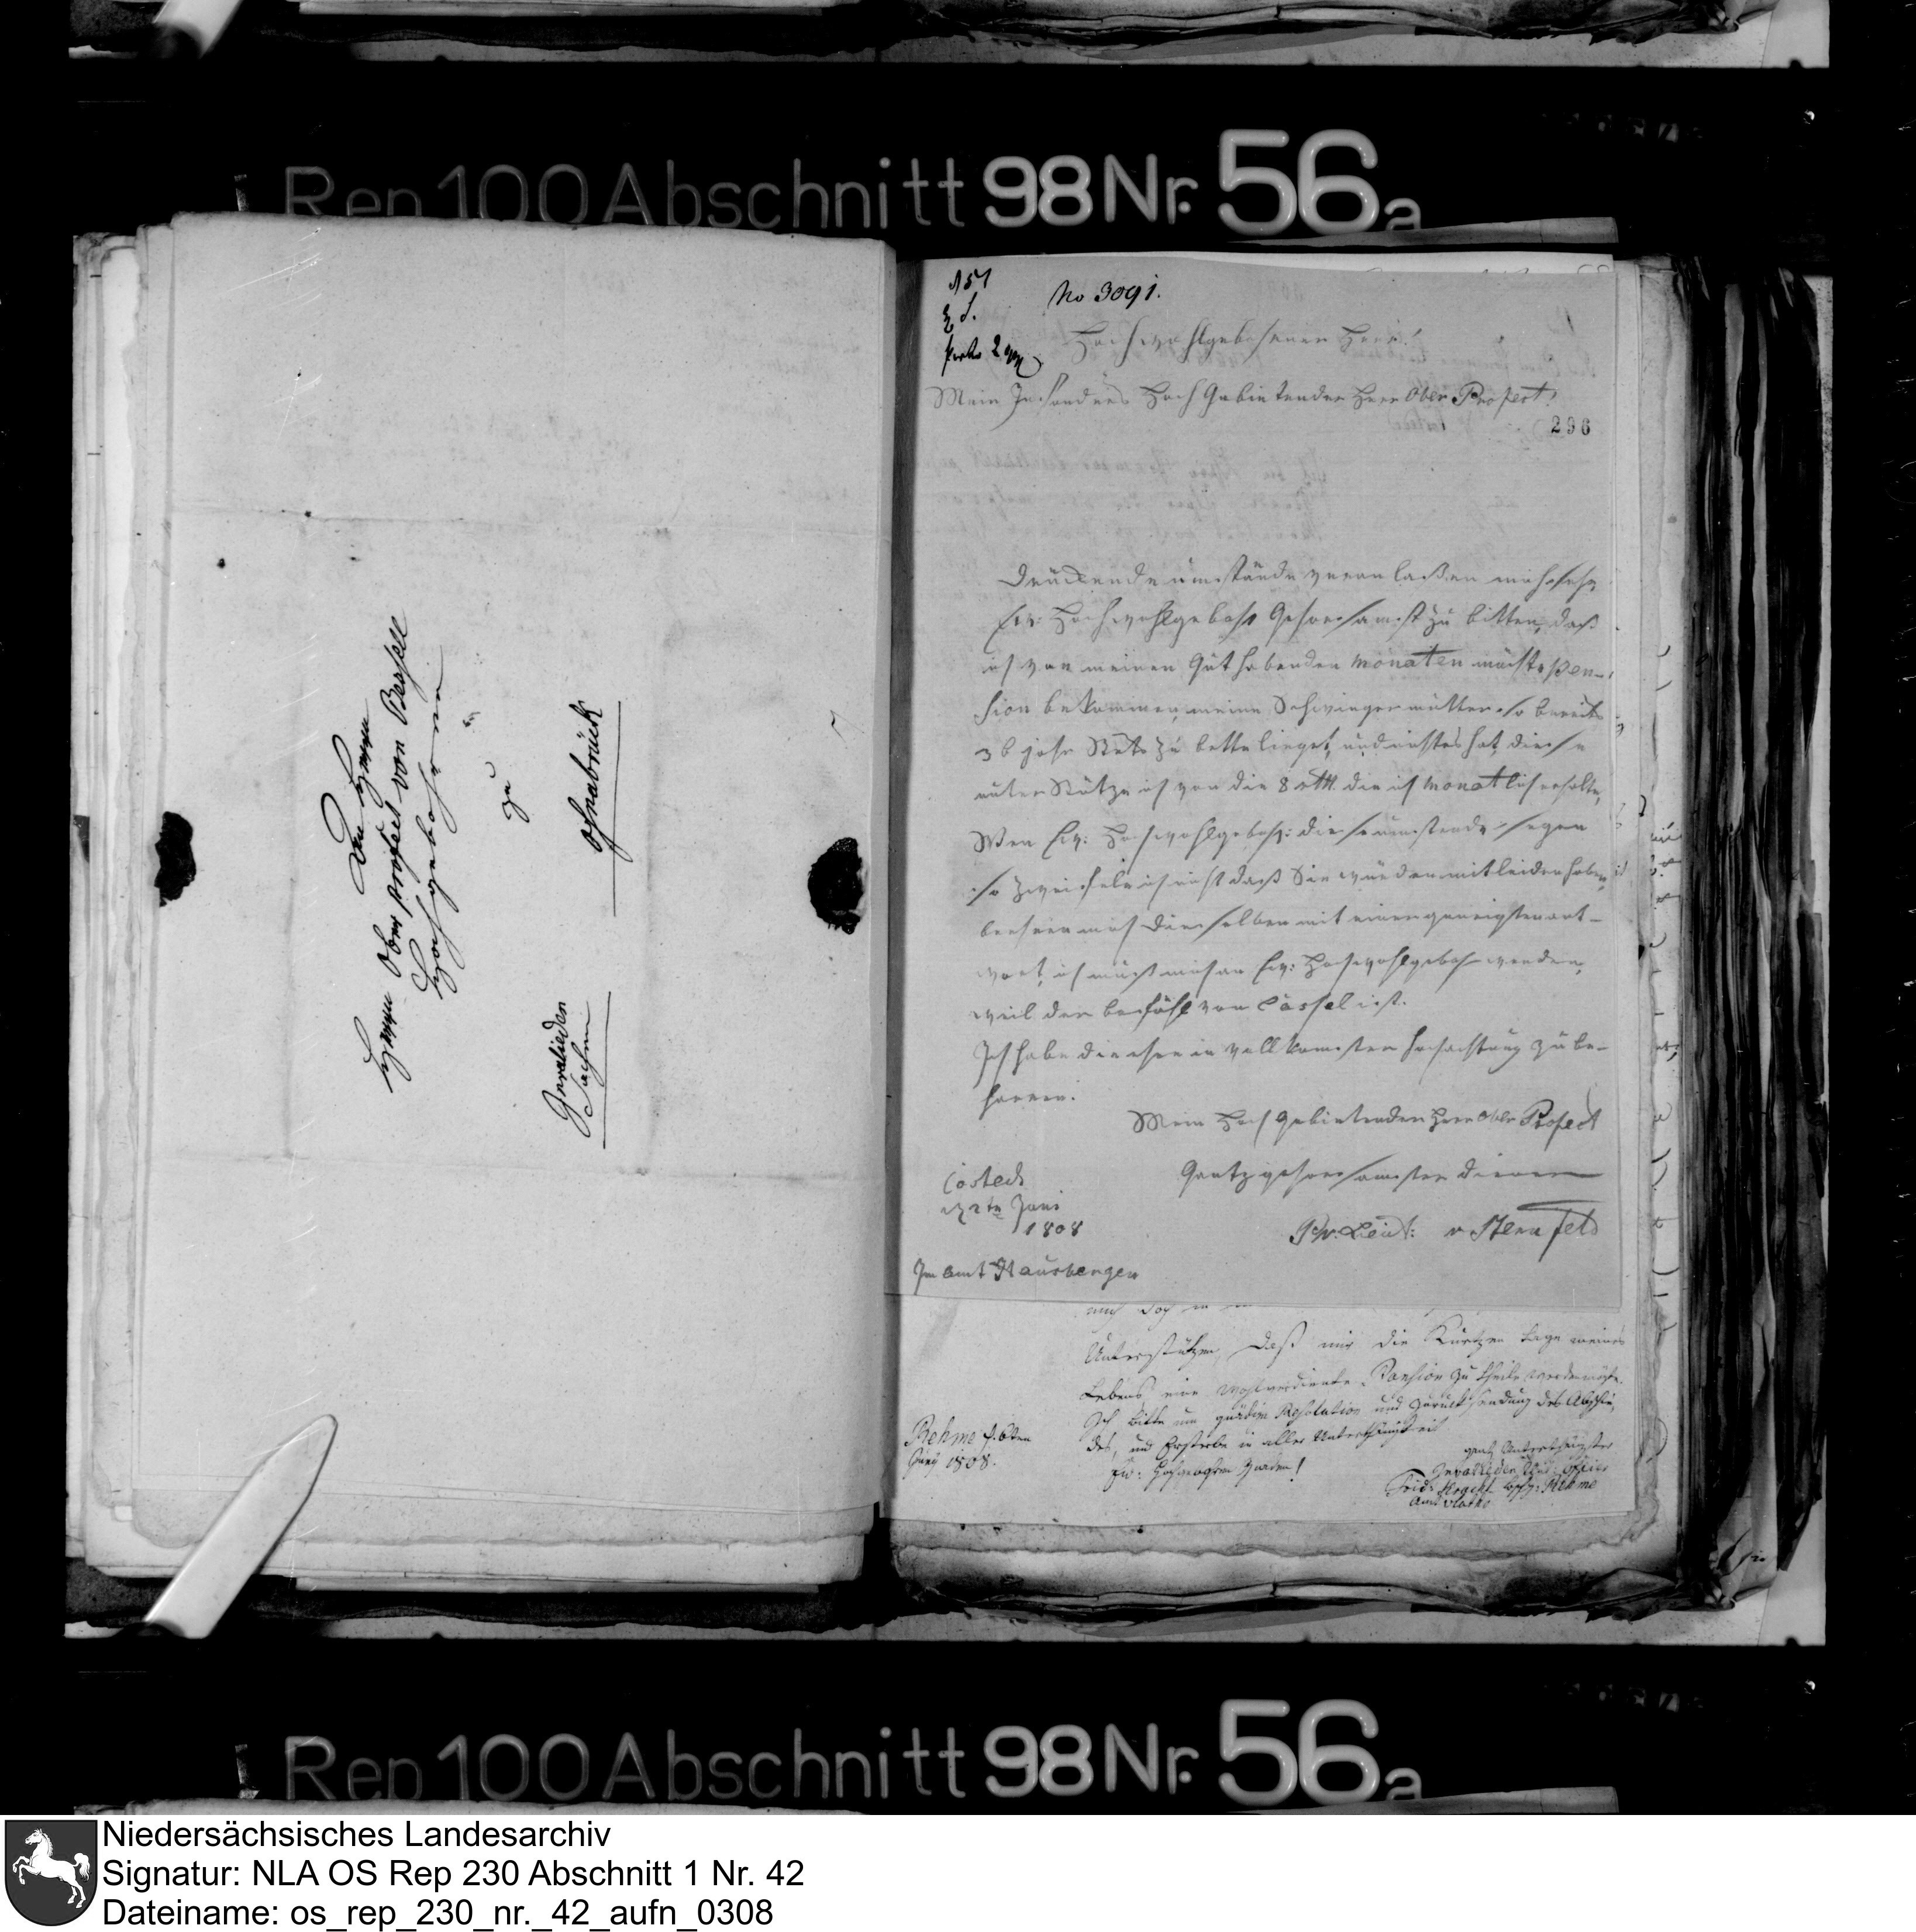 Rep 100 Abschnitt 98 Nr. 56a
Den Herrn
Herrn Ober Præfect von Bessell
Hochgebohrnen
zu
Osnabrück
Invaliden
Sachen
No 3091.
Hochwohlgebohrner Herr!
Mein Insonders Hoch Gebietender Herr Ober Præfect!
296
Drückende umstände veranlaßen mich sehr
Ew: Hochwohlgebohr Gehorsamst zu bitten, daß
ich von meinen Guthabenden monaten möchte pen-
sion bekommen, meine Schwiegermutter so bereits
3 6 jahr Stets zu bette lieget, und nichtes hat, diese
unter Stütze ich von die 8 rtℓ. die ich monatlich erhalte,
Wen Ew: Hochwohlgebohr: diese umstende segen
so zweifele ich nicht daß Sie würden mitleiden haben,
beehren mich dieselben mit einer geneigten ant-
wort, ich muß mich an Ew: Hochwohlgebohr wenden,
weil der befehl von Cassel ist.
Ich habe die ehre in vollkomster hochachtung zu be-
harren.
Mein Hoch Gebietender Herr Ober Præfect
Gantz gehorsamster diener
Costedt
Juni
1808
Lieut: v Sternfeld
Im Amt Hausbergen
Unterstützen, daß mir die Kurtzen tage meines
Lebens eine wohlverdiente Pension zu theile werden möge.
Ich bitte um gnädige Resolution und Zurücksendung des Abschie,
des, und Ersterbe in aller Unterthänigkeit
Rehme d. 6ten
Juny 1808.
Ew: Hochwohlgn Gnaden!
gantz Unterthänigster
Invaliden Und: officier
Frid: Rehme
Amt Vlotho
Rep 100 Abschnitt 98 Nr. 56a
Niedersächsisches Landesarchiv
Signatur: NLA OS Rep 230 Abschnitt 1 Nr. 42
Dateiname: os_rep_230_nr._42_aufn_0308